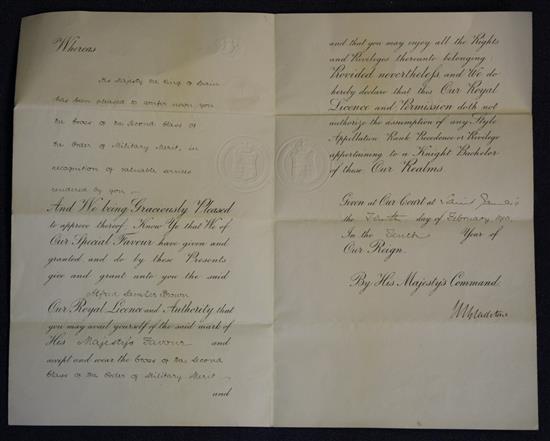 Whereas
His Majesty the King of Spain
has been pleased to confer upon you
the Cross of the Second Class of
the Order of Military Merit, in
recognition of valuable services
rendered by you —
And We being Graciously Pleased
to approve thereof: Know Ye that We of
Our Special Favour have given and
granted and do by these Presents
give and grant unto you the said
Alfred Brown
Our Royal Licence and Authority that
you may avail yourself of the said mark of
His Majesty's Favour and
accept and wear the Cross of the Second
Class of the Order of Military Merit —
and
and that you may enjoy all the Rights
and Privileges thereunto belonging:
Provided nevertheless and We do
hereby declare that this Our Royal
Licence and Permission doth not
authorize the assumption of any Style
Appellation Rank Precedence or Privilege
appertaining to a Knight Bachelor
of these Our Realms.
Given at Our Court at Saint James's
the day of February 191
In the Year of
Our Reign.
By His Majesty's Command.